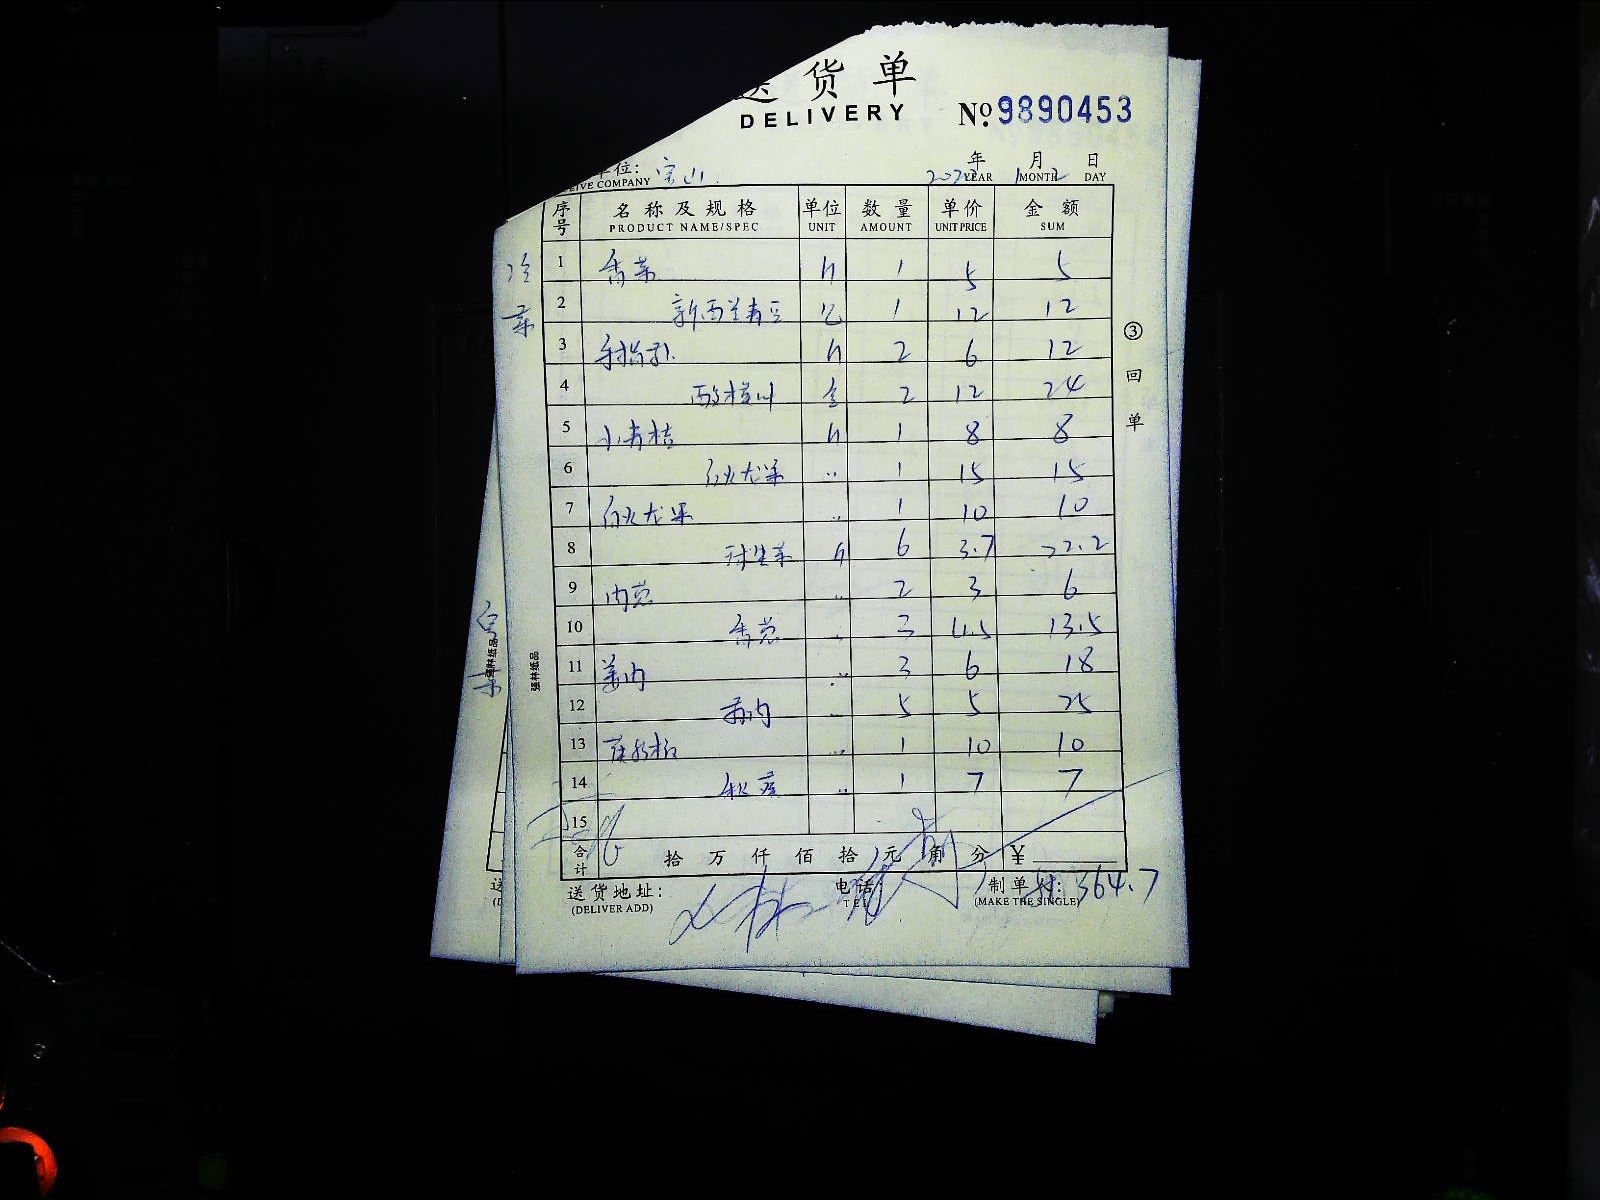 送货单
DELIVERY
№ 9890453
单位: 宝山
年 月 日
YEAR MONTH DAY
序号 名称及规格 单位 数量 单价 金额
PRODUCT NAME/SPEC UNIT AMOUNT UNIT PRICE SUM
1 香菜 斤 1 5 5
2 新西兰青豆 包 1 12 12
3 斤 2 6 12
4 2 12 24
5 小青桔 斤 1 8 8
6 火龙果 〃 1 15 15
7 白火龙果 〃 1 10 10
8 球生菜 斤 6 3.7 22.2
9 肉葱 〃 2 3 6
10 香葱 〃 3 4.5 13.5
11 姜肉 〃 3 6 18
12 蒜肉 〃 5 5 25
13 〃 1 10 10
14 秋葵 〃 1 7 7
15
合计 拾 万 仟 佰 拾 元 角 分 ¥
364.7
送货地址: 电话: 制单
(DELIVER ADD) TEL (MAKE THE SINGLE)
③回单
冷菜
强林纸品
强林纸品